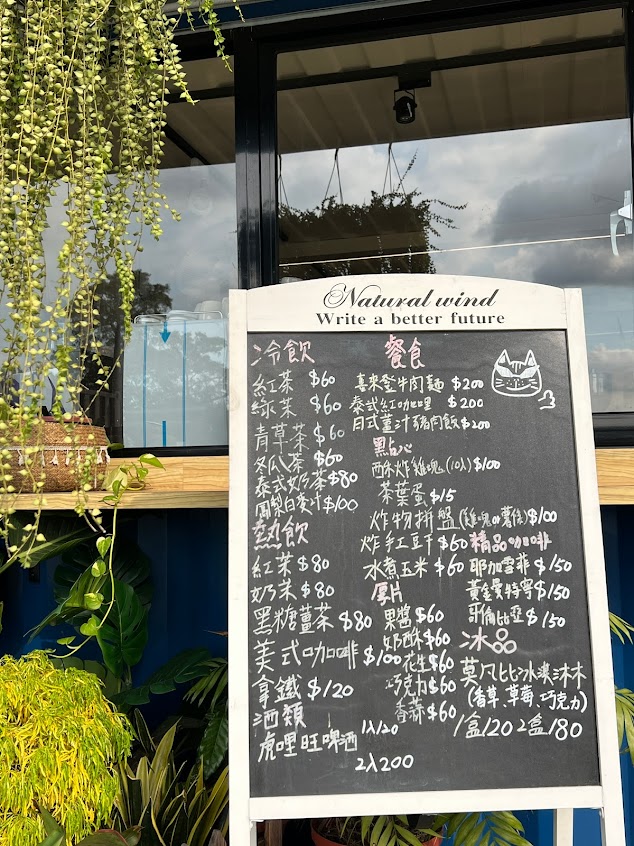 Natural wind
Write a better future
冷飲
紅茶 $60
綠茶 $60
青草茶 $60
冬瓜茶 $60
泰式奶茶 $80
鳳梨白麥汁 $100
熱飲
紅茶 $80
奶茶 $80
黑糖薑茶 $80
美式咖啡 $100
拿鐵 $120
酒類
虎哩旺啤酒 1入120
2入200
餐食
喜來登牛肉麵 $200
泰式紅咖哩 $200
日式薑汁豬肉飯 $200
點心
酥炸雞塊(10入) $100
茶葉蛋 $15
炸物拼盤(雞塊or薯條) $100
炸手工豆干 $60
水煮玉米 $60
厚片
果醬 $60
奶酥 $60
花生 $60
巧克力 $60
香蒜 $60
精品咖啡
耶加雪菲 $150
黃金曼特寧 $150
哥倫比亞 $150
冰品
莫凡比冰淇淋
(香草、草莓、巧克力)
1盒120 2盒180